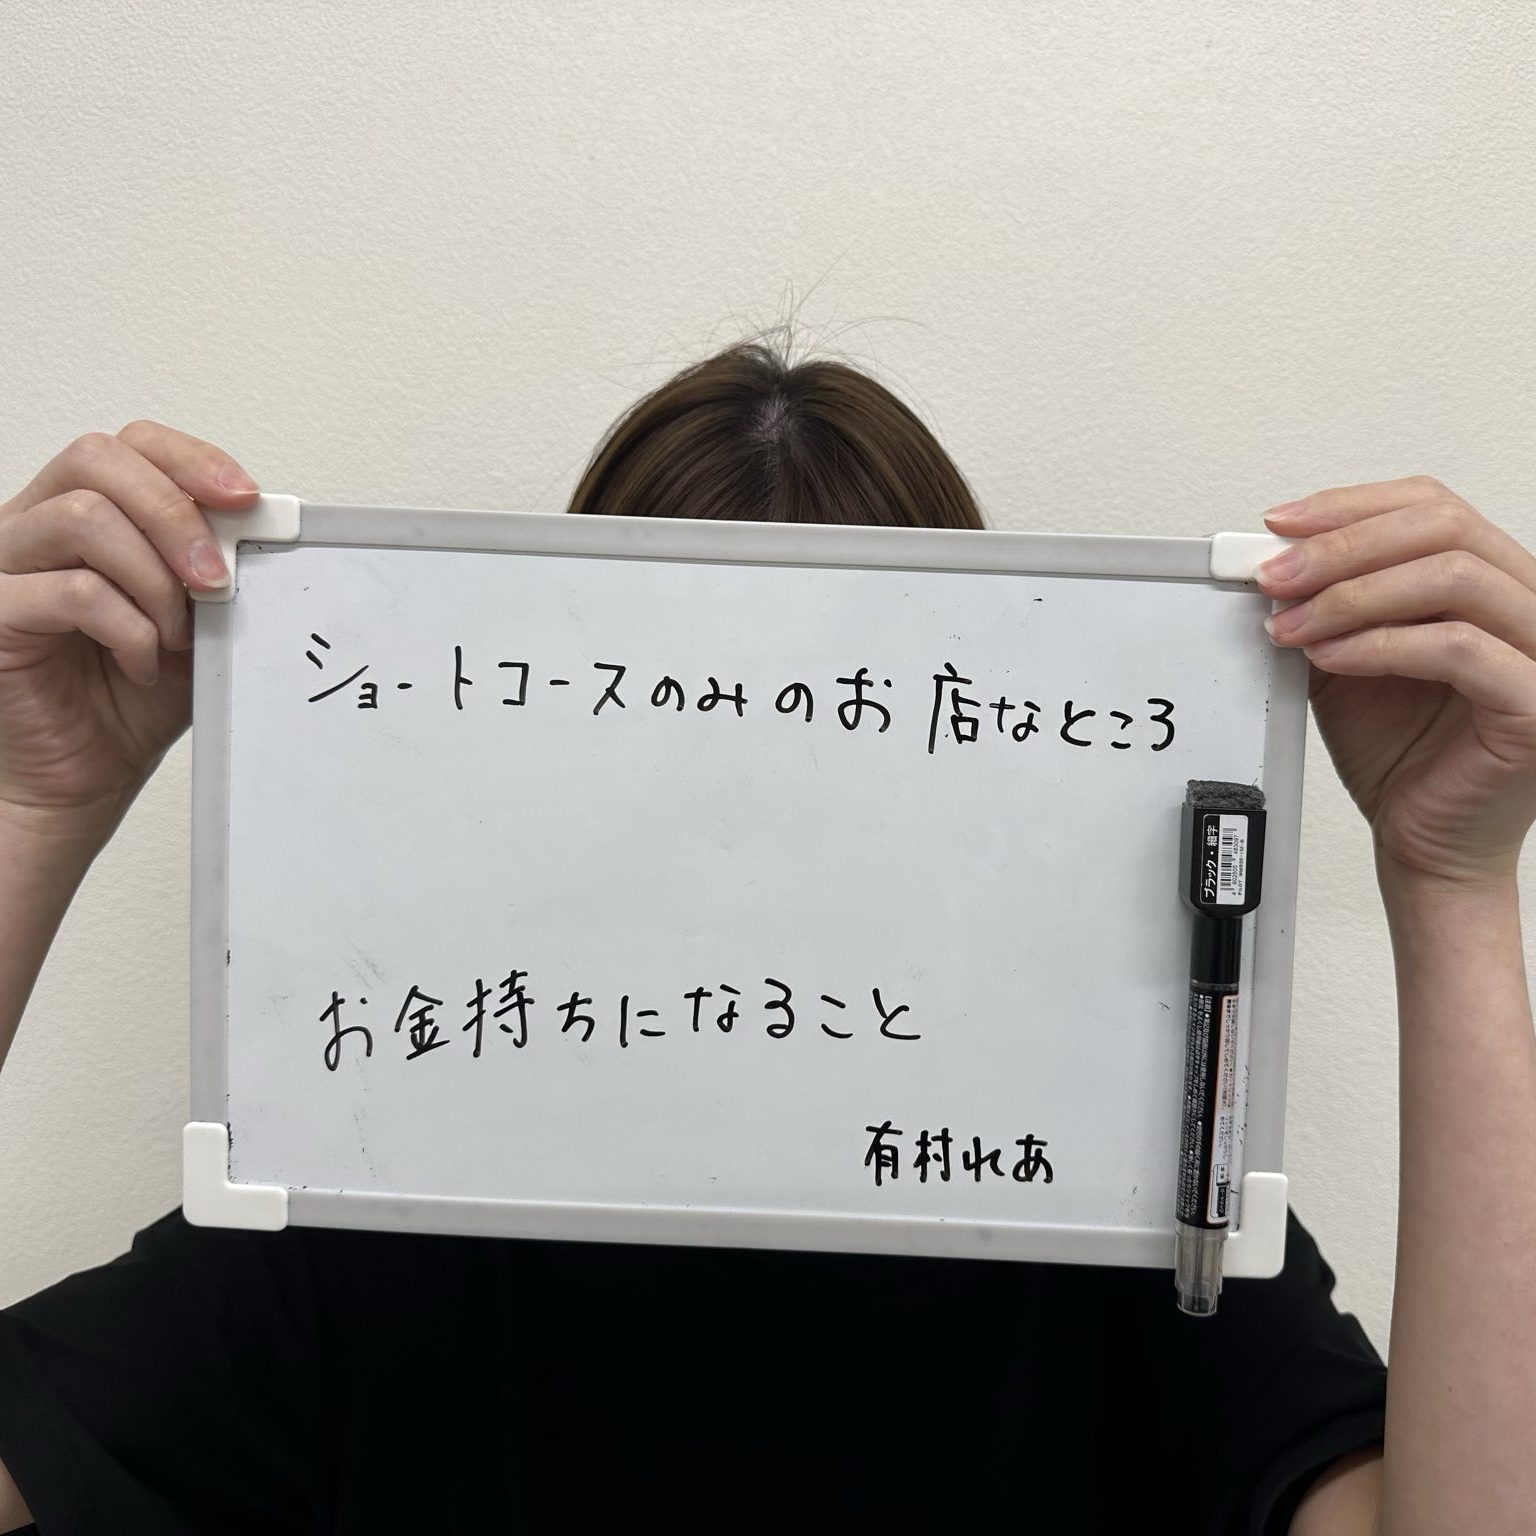 ショートコースのみのお店なところ
お金持ちになること
有村れあ
ブラック・細字